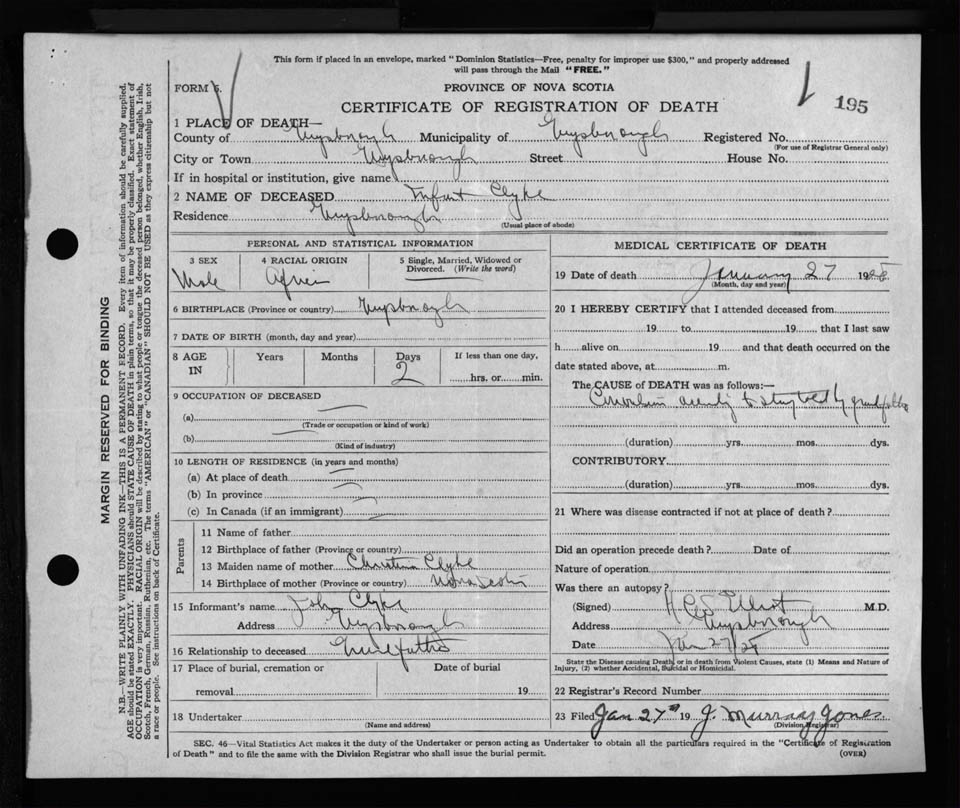 This form if placed in an envelope, marked "Dominion Statistics—Free, penalty for improper use $300," and properly addressed
will pass through the Mail "FREE."
FORM 6.
PROVINCE OF NOVA SCOTIA
195
CERTIFICATE OF REGISTRATION OF DEATH
1 PLACE OF DEATH—
County of Guysborough Municipality of Guysborough Registered No.
(For use of Registrar General only)
City or Town Guysborough Street House No.
If in hospital or institution, give name
2 NAME OF DECEASED Infant Clyke
Residence Guysborough
(Usual place of abode)
PERSONAL AND STATISTICAL INFORMATION
3 SEX 4 RACIAL ORIGIN 5 Single, Married, Widowed or
Divorced. (Write the word)
Male
6 BIRTHPLACE (Province or country) Guysborough
7 DATE OF BIRTH (month, day and year)
8 AGE Years Months Days If less than one day,
IN 2 hrs. or min.
9 OCCUPATION OF DECEASED
(a)
(Trade or occupation or kind of work)
(b)
(Kind of industry)
10 LENGTH OF RESIDENCE (in years and months)
(a) At place of death
(b) In province
(c) In Canada (if an immigrant)
Parents
11 Name of father
12 Birthplace of father (Province or country)
13 Maiden name of mother Christina Clyke
14 Birthplace of mother (Province or country) Nova Scotia
15 Informant's name John Clyke
Address Guysborough
16 Relationship to deceased Grandfather
17 Place of burial, cremation or Date of burial
removal 19
18 Undertaker
(Name and address)
MEDICAL CERTIFICATE OF DEATH
19 Date of death January 27 1928
(Month, day and year)
20 I HEREBY CERTIFY that I attended deceased from
19 to 19 , that I last saw
h alive on 19 and that death occurred on the
date stated above, at m.
The CAUSE of DEATH was as follows:—
Convulsions according to story told by grandfather
(duration) yrs. mos. dys.
CONTRIBUTORY
(duration) yrs. mos. dys.
21 Where was disease contracted if not at place of death?
Did an operation precede death? Date of
Nature of operation
Was there an autopsy?
(Signed) Elliot M.D.
Address Guysborough
Date Jan 27/28
State the Disease causing Death, or in death from Violent Causes, state (1) Means and Nature of
Injury, (2) whether Accidental, Suicidal or Homicidal.
22 Registrar's Record Number
23 Filed Jan 27th 19 J. Murray Jones
(Division Registrar)
SEC. 46—Vital Statistics Act makes it the duty of the Undertaker or person acting as Undertaker to obtain all the particulars required in the "Certificate of Registration
of Death" and to file the same with the Division Registrar who shall issue the burial permit. (OVER)
MARGIN RESERVED FOR BINDING
N.B.—WRITE PLAINLY WITH UNFADING INK—THIS IS A PERMANENT RECORD. Every item of information should be carefully supplied.
AGE should be stated EXACTLY. PHYSICIANS should STATE CAUSE OF DEATH in plain terms, so that it may be properly classified. Exact statement of
OCCUPATION is very important. RACIAL ORIGIN will be described by stating to what people or tongue the deceased person belonged, whether English, Irish,
Scotch, French, German, Russian, Ruthenian, etc. The terms "AMERICAN" or "CANADIAN" SHOULD NOT BE USED as they express citizenship but not
a race or people. See instructions on back of Certificate.